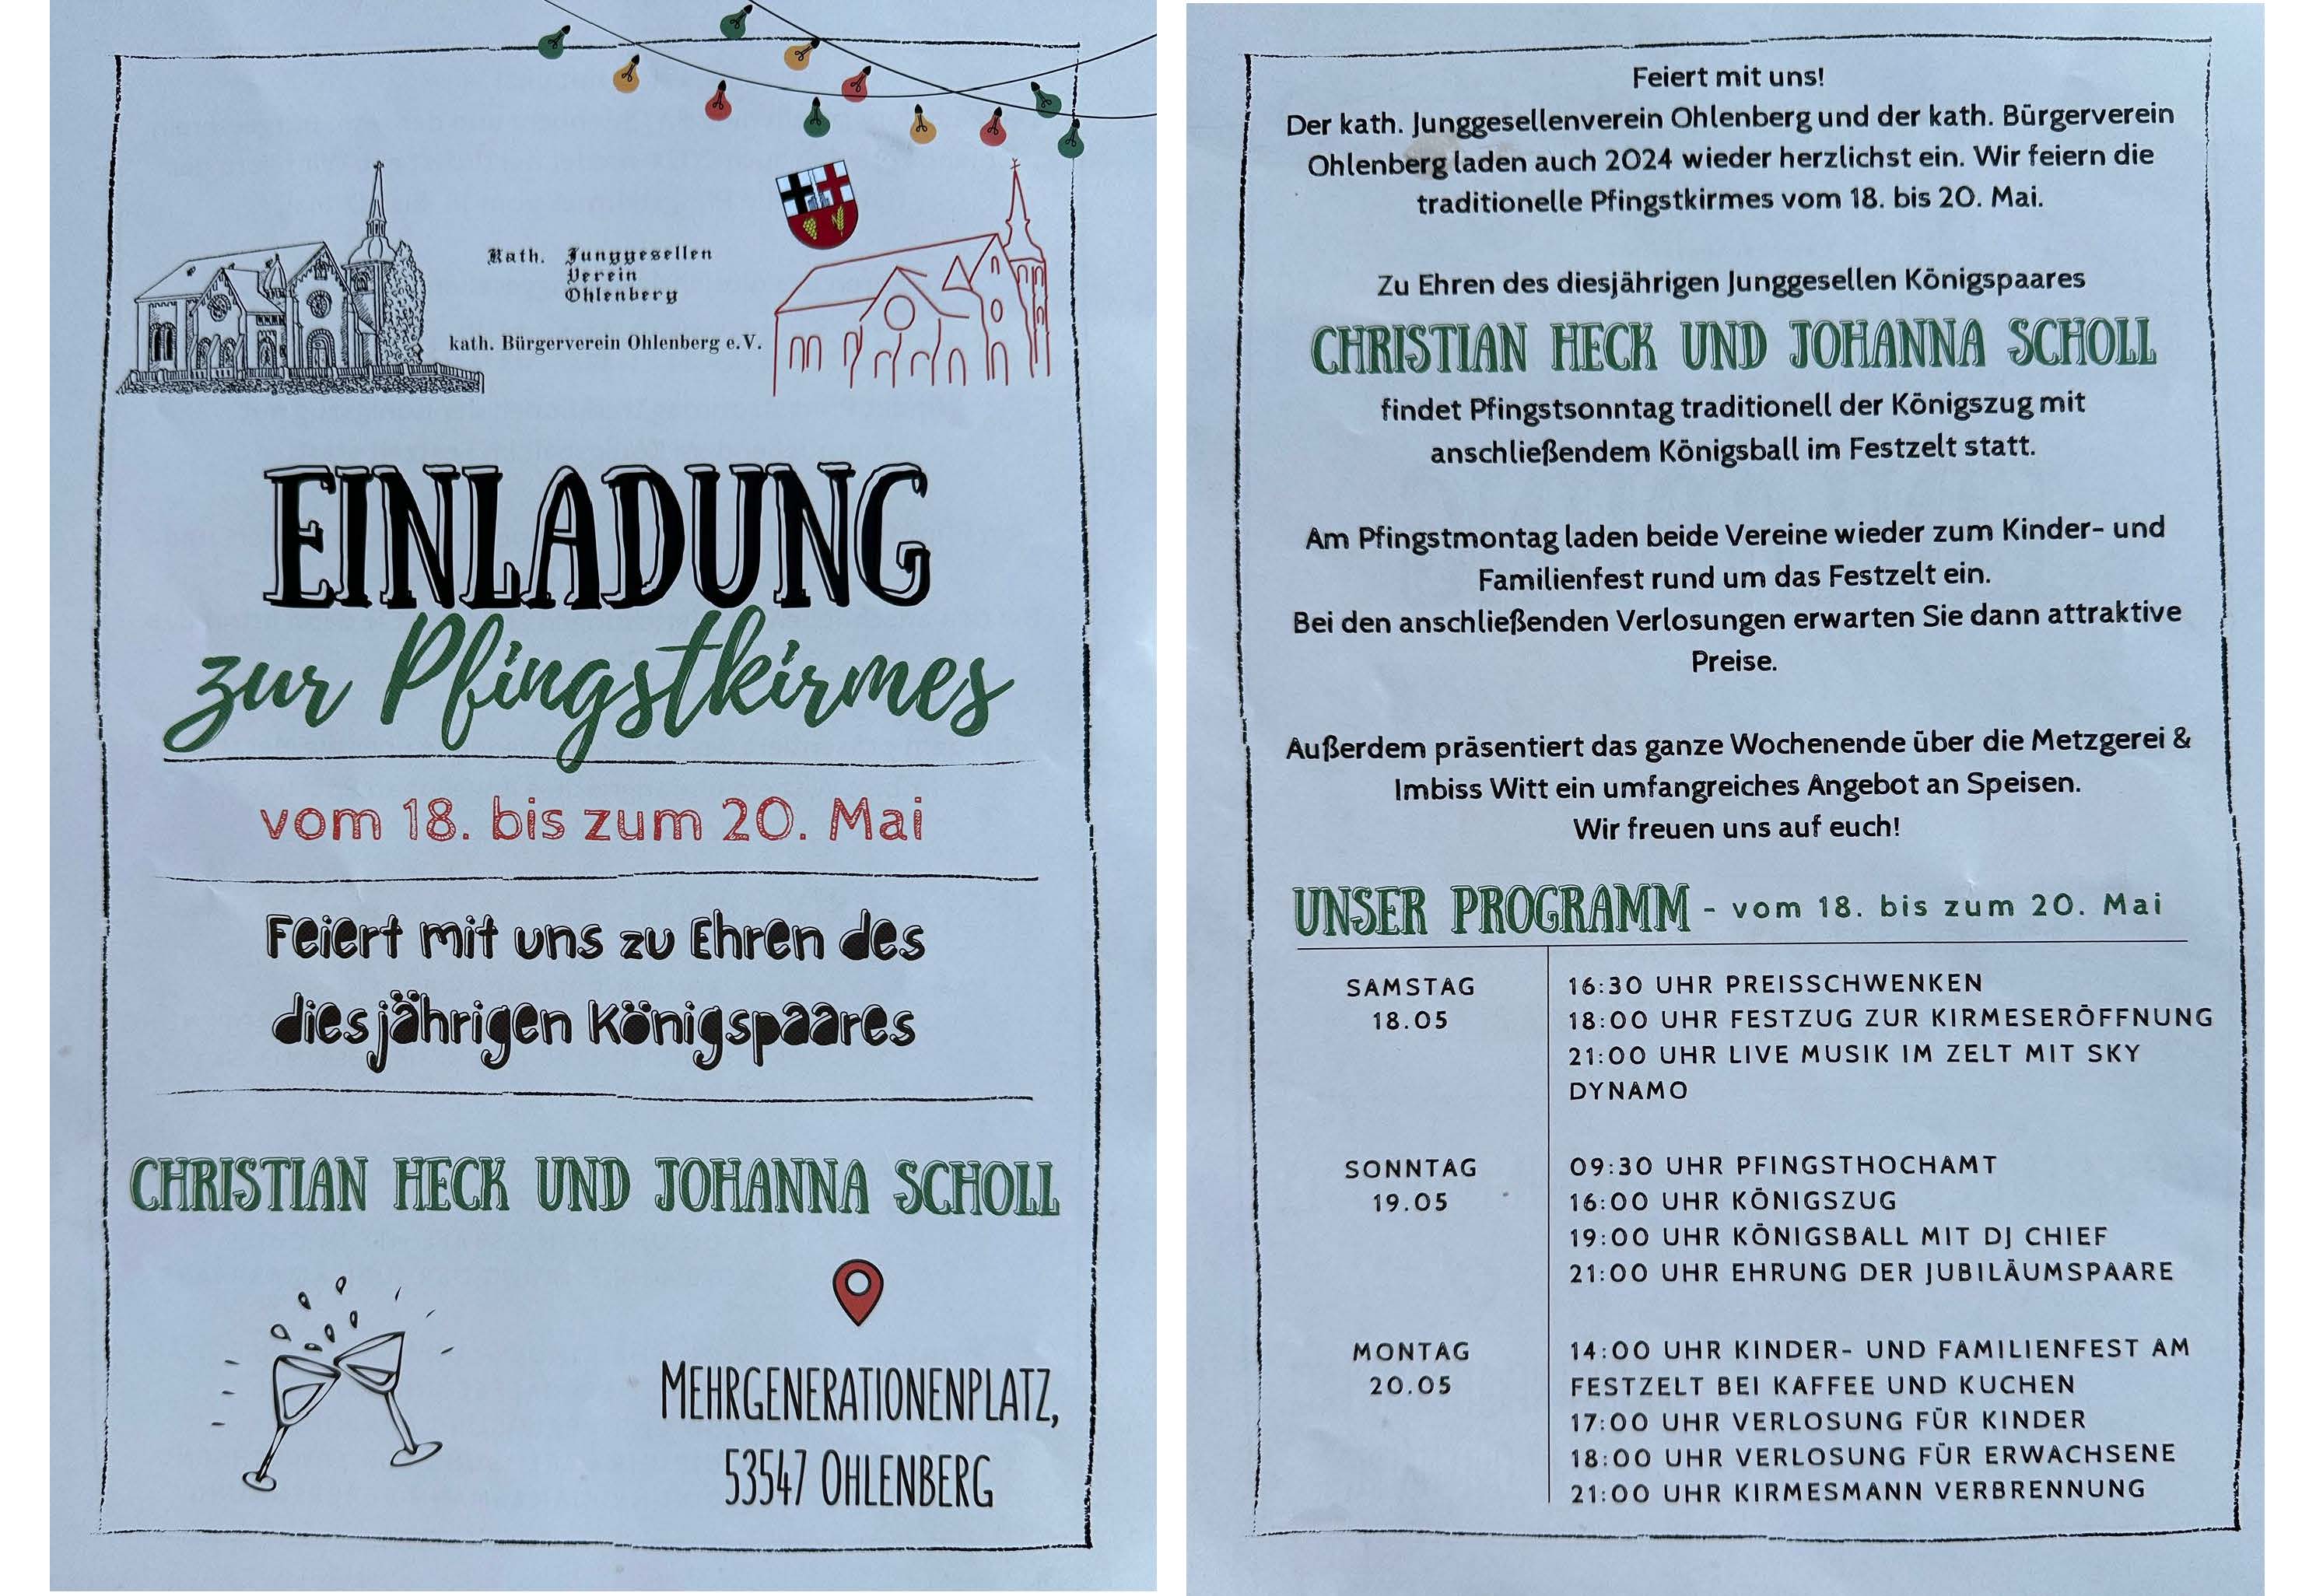 Kath. Junggesellen
Verein
Ohlenberg
kath. Bürgerverein Ohlenberg e.V.
EINLADUNG
zur Pfingstkirmes
vom 18. bis zum 20. Mai
Feiert mit uns zu Ehren des
diesjährigen Königspaares
CHRISTIAN HECK UND JOHANNA SCHOLL
MEHRGENERATIONENPLATZ,
53547 OHLENBERG
Feiert mit uns!
Der kath. Junggesellenverein Ohlenberg und der kath. Bürgerverein
Ohlenberg laden auch 2024 wieder herzlichst ein. Wir feiern die
traditionelle Pfingstkirmes vom 18. bis 20. Mai.
Zu Ehren des diesjährigen Junggesellen Königspaares
CHRISTIAN HECK UND JOHANNA SCHOLL
findet Pfingstsonntag traditionell der Königszug mit
anschließendem Königsball im Festzelt statt.
Am Pfingstmontag laden beide Vereine wieder zum Kinder- und
Familienfest rund um das Festzelt ein.
Bei den anschließenden Verlosungen erwarten Sie dann attraktive
Preise.
Außerdem präsentiert das ganze Wochenende über die Metzgerei &
Imbiss Witt ein umfangreiches Angebot an Speisen.
Wir freuen uns auf euch!
UNSER PROGRAMM - vom 18. bis zum 20. Mai
SAMSTAG
18.05
16:30 UHR PREISSCHWENKEN
18:00 UHR FESTZUG ZUR KIRMESERÖFFNUNG
21:00 UHR LIVE MUSIK IM ZELT MIT SKY
DYNAMO
SONNTAG
19.05
09:30 UHR PFINGSTHOCHAMT
16:00 UHR KÖNIGSZUG
19:00 UHR KÖNIGSBALL MIT DJ CHIEF
21:00 UHR EHRUNG DER JUBILÄUMSPAARE
MONTAG
20.05
14:00 UHR KINDER- UND FAMILIENFEST AM
FESTZELT BEI KAFFEE UND KUCHEN
17:00 UHR VERLOSUNG FÜR KINDER
18:00 UHR VERLOSUNG FÜR ERWACHSENE
21:00 UHR KIRMESMANN VERBRENNUNG